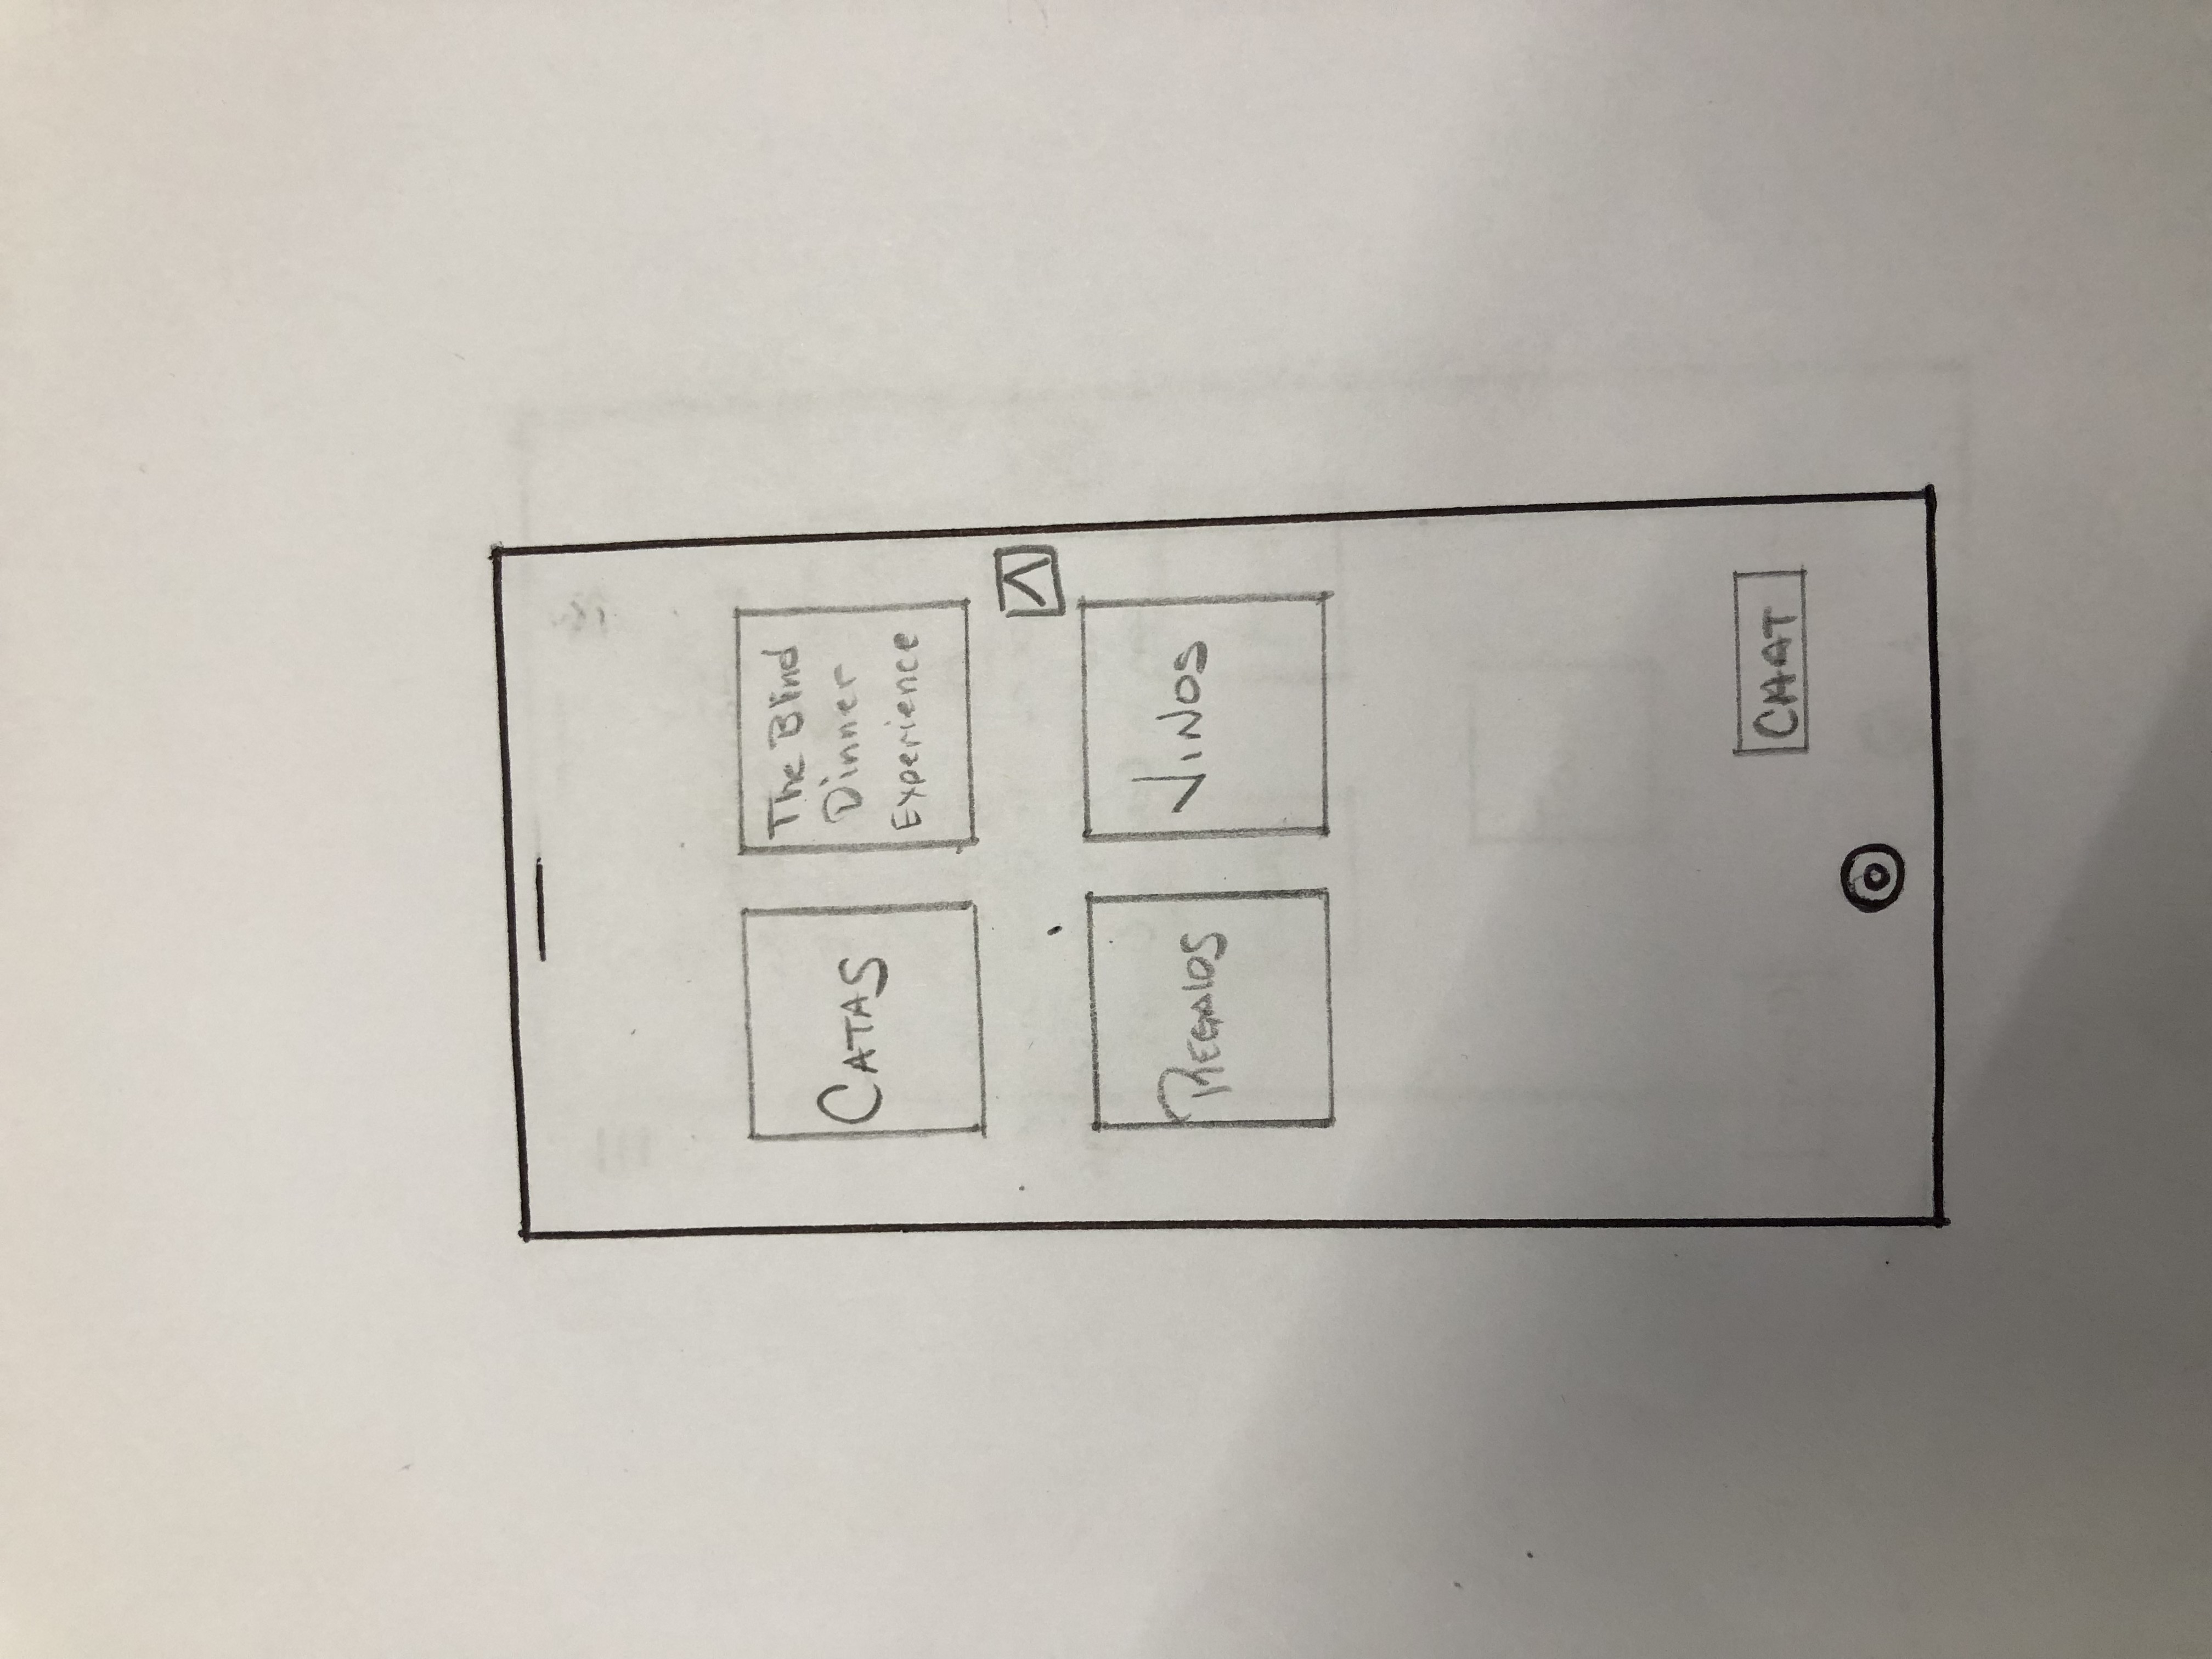 CATAS
The Blind
Dinner
Experience
REGALOS
VINOS
CHAT